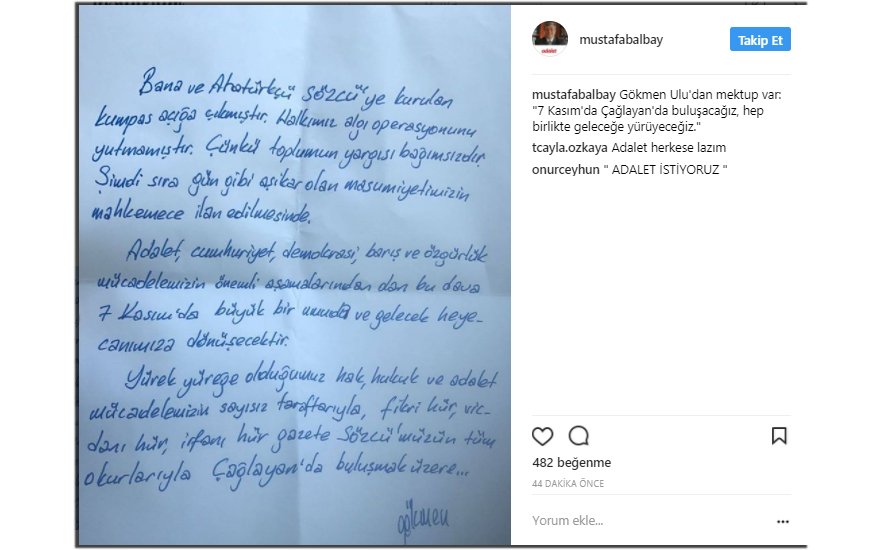 Bana ve Atatürkçü SÖZCÜ'ye kurulan
kumpas açığa çıkmıştır. Halkımız algı operasyonunu
yutmamıştır. Çünkü toplumun yargısı bağımsızdır.
Şimdi sıra gün gibi aşikar olan masumiyetimizin
mahkemece ilan edilmesinde.
Adalet, cumhuriyet, demokrasi, barış ve özgürlük
mücadelemizin önemli aşamalarından dan bu dava
7 Kasım'da büyük bir umuda ve gelecek heye-
canımıza dönüşecektir.
Yürek yüreğe olduğumuz hak, hukuk ve adalet
mücadelemizin sayısız taraftarıyla, fikri hür, vic-
danı hür, irfanı hür gazete SÖZCÜ'müzün tüm
okurlarıyla Çağlayan'da buluşmak üzere...
gökmen
adalet
mustafabalbay
Takip Et
mustafabalbay Gökmen Ulu'dan mektup var:
"7 Kasım'da Çağlayan'da buluşacağız, hep
birlikte geleceğe yürüyeceğiz."
tcayla.ozkaya Adalet herkese lazım
onurceyhun " ADALET İSTİYORUZ "
482 beğenme
44 DAKİKA ÖNCE
Yorum ekle...